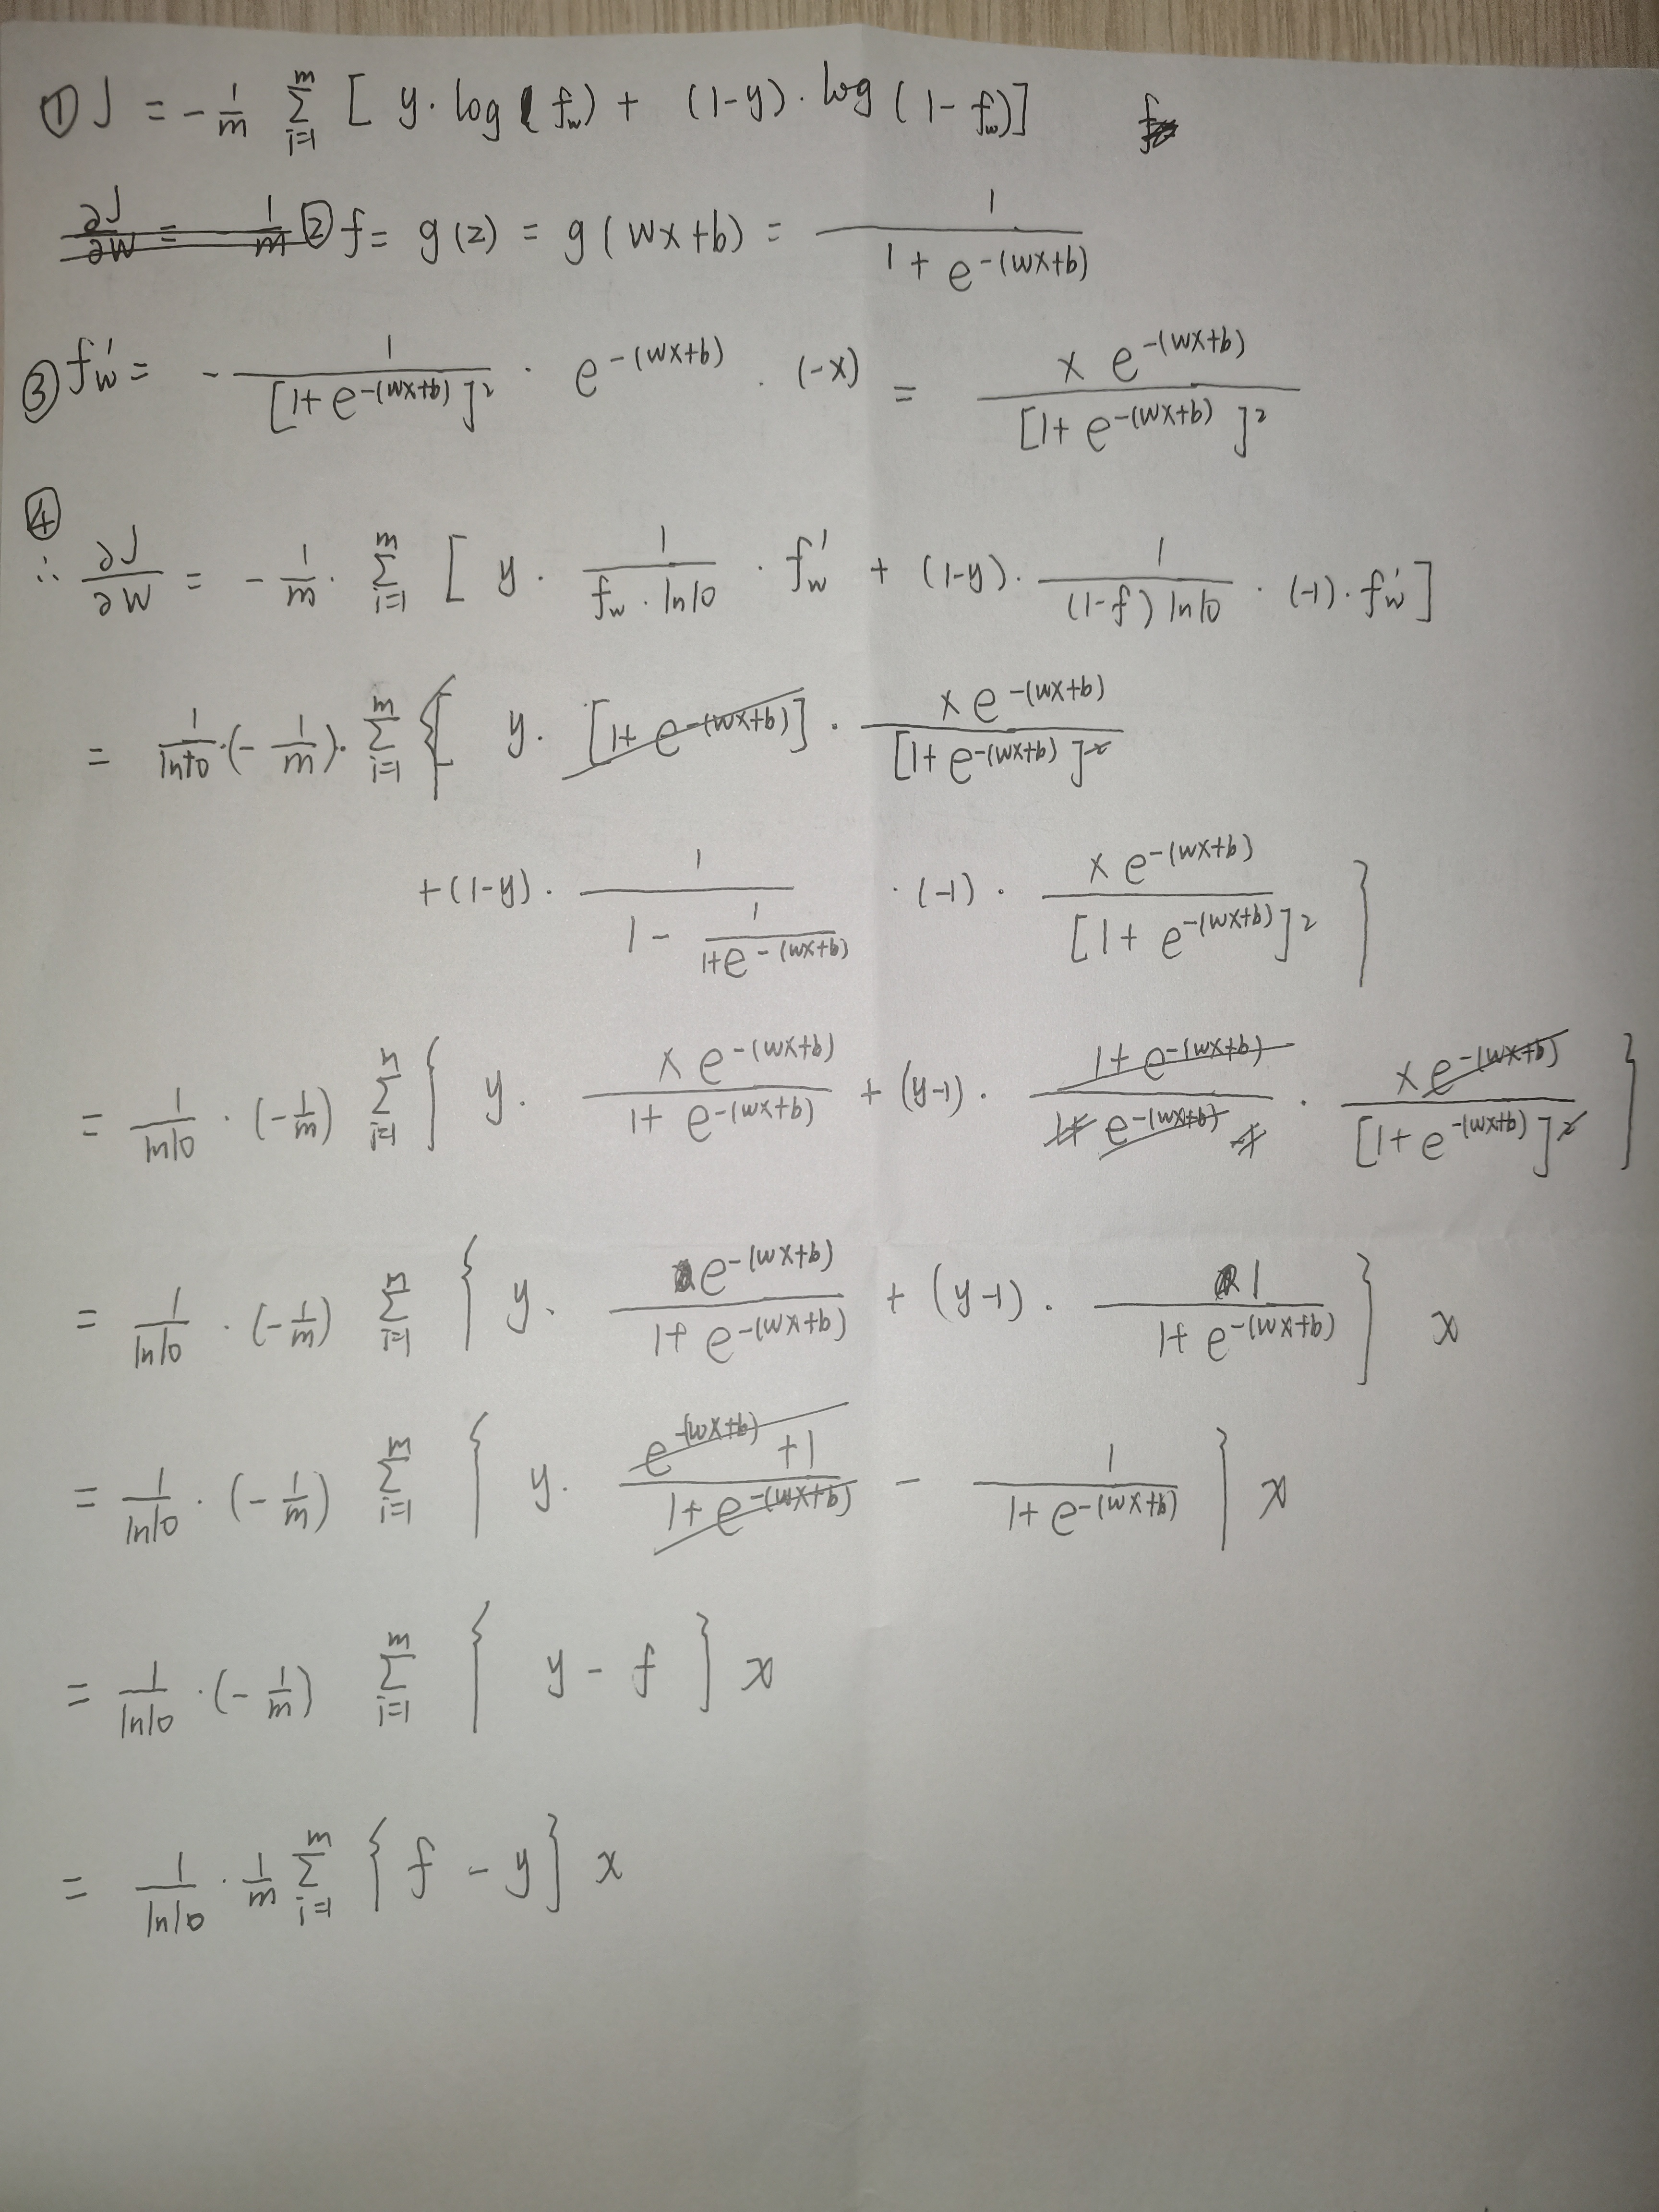 ① J = -1/m Σ_{i=1}^{m} [ y · log(f_w) + (1-y) · log(1-f_w)]
∂J/∂W = 1/m ② f = g(z) = g(wx+b) = 1/(1+e^{-(wx+b)})
③ f'_w = - 1/[1+e^{-(wx+b)}]² · e^{-(wx+b)} · (-x) = x e^{-(wx+b)}/[1+e^{-(wx+b)}]²
④
∴ ∂J/∂W = -1/m · Σ_{i=1}^{m} [ y · 1/(f_w · ln10) · f'_w + (1-y) · 1/((1-f) ln10) · (-1) · f'_w ]
= 1/ln10 · (-1/m) · Σ_{i=1}^{m} { y · [1+e^{-(wx+b)}] · x e^{-(wx+b)}/[1+e^{-(wx+b)}]²
+(1-y) · 1/(1 - 1/(1+e^{-(wx+b)})) · (-1) · x e^{-(wx+b)}/[1+e^{-(wx+b)}]² }
= 1/ln10 · (-1/m) Σ_{i=1}^{n} { y · x e^{-(wx+b)}/(1+e^{-(wx+b)}) + (y-1) · (1+e^{-(wx+b)})/(1+e^{-(wx+b)}-1) · x e^{-(wx+b)}/[1+e^{-(wx+b)}]² }
= 1/ln10 · (-1/m) Σ_{i=1}^{n} { y · e^{-(wx+b)}/(1+e^{-(wx+b)}) + (y-1) · 1/(1+e^{-(wx+b)}) } x
= 1/ln10 · (-1/m) Σ_{i=1}^{m} { y · (e^{-(wx+b)}+1)/(1+e^{-(wx+b)}) - 1/(1+e^{-(wx+b)}) } x
= 1/ln10 · (-1/m) Σ_{i=1}^{m} { y - f } x
= 1/ln10 · 1/m Σ_{i=1}^{m} { f - y } x